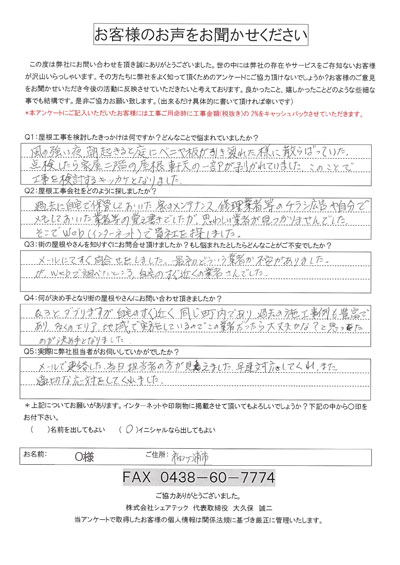 お客様のお声をお聞かせください
この度は弊社にお問い合わせを頂き誠にありがとうございました。世の中には弊社の存在やサービスをご存知ないお客様
が沢山いらっしゃいます。その方たちに弊社をよく知って頂くためのアンケートにご協力頂けないでしょうか?お客様のご意見
をお聞かせいただき今後の活動に反映させていただきたいと考えております。良かったこと、嬉しかったことどのような些細な
事でも結構です。是非ご協力お願い致します。(出来るだけ具体的に書いて頂ければ幸いです)
*本アンケートにご記入いただいたお客様には工事ご用命時に工事金額(税抜き)の7%をキャッシュバックさせていただきます。
Q1:屋根工事を検討したきっかけは何ですか?どんなことで悩まれていましたか?
風の強い夜、朝起きると庭にベニヤ板が引き裂れた様に散らばっていた。
点検したら家屋二階の屋根軒天の一部が剥がれていました。このことで
工事を検討するキッカケとなりました。
Q2:屋根工事会社をどのように探しましたか?
過去に自宅で保管しておいた家のメンテナンス、修理業者等のチラシ広告や自分で
メモしておいた業者等の覚え書きでしたが、思わしい業者が見つかりませんでした。
そこでWeb(インターネット)で貴社を探しました。
Q3:街の屋根やさんを知りすぐにお問合せ頂けましたか?もし悩まれたとしたらどんなことがご不安でしたか?
メールにてすぐ問合せをしました。最初どういう業者か不安がありました。
が、Webで調べたところ、自宅のすぐ近くの業者さんでした。
Q4:何が決め手となり街の屋根やさんにお問い合わせ頂きましたか?
Q3とダブリますが自宅のすぐ近く、同じ町内であり、過去の施工事例も豊富で
あり、多くのエリア、地域で実施をしているのでこの業者だったら大丈夫かな?と思った
のが決め手となりました。
Q5:実際に弊社担当者がお伺いしていかがでしたか?
メールで連絡した、当日担当者の方が見えました。早速対応をしてくれ、また
適切な応対をしてくれました。
*上記についてお願いがあります。インターネットや印刷物に掲載させて頂いてもよろしいでしょうか?下記の中から○印を
お付下さい。
( )名前を出してもよい (○)イニシャルなら出してもよい
お名前: O様 ご住所: 袖ヶ浦市
FAX 0438-60-7774
ご協力ありがとうございました。
株式会社シェアテック 代表取締役 大久保 誠二
当アンケートで取得したお客様の個人情報は関係法規に基づき厳正に管理いたします。